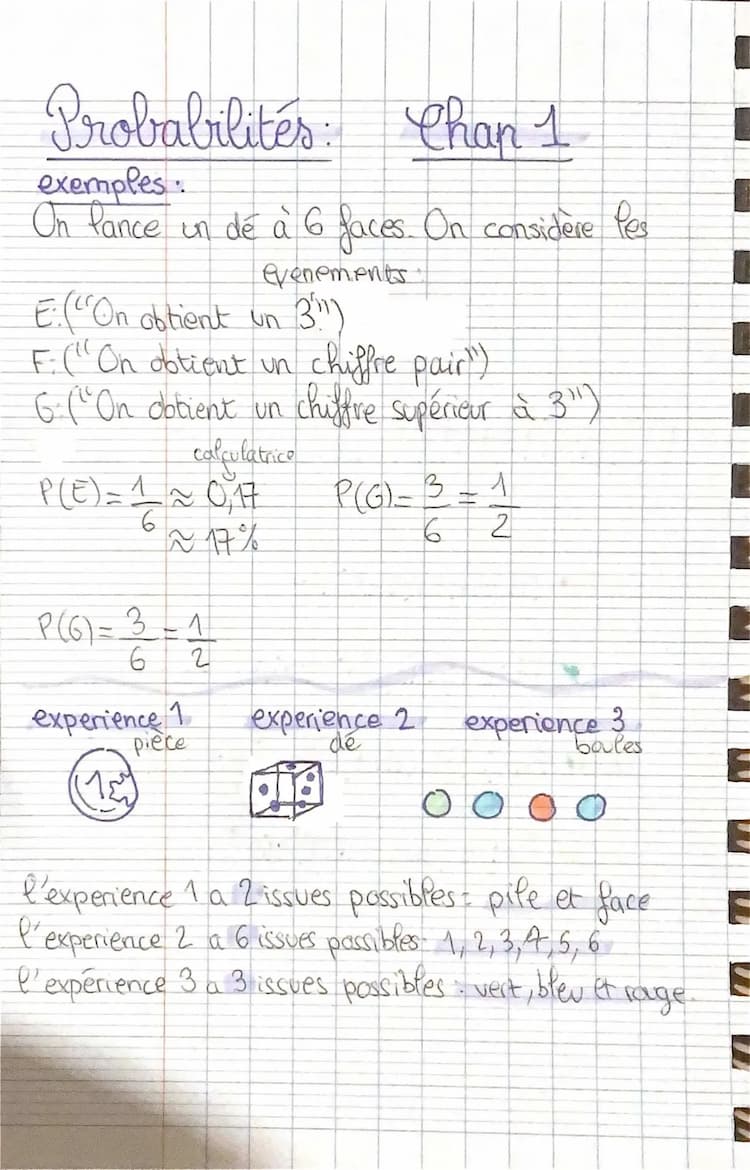 Probabilités: Chap 1
exemples:
On lance un dé à 6 faces. On considère les
evenements:
E:("On obtient un 3")
F:("On obtient un chiffre pair")
G:("On obtient un chiffre supérieur à 3")
calculatrice
P(E)=1/6 ≈ 0,17 P(G)=3/6=1/2
≈ 17%
P(G)=3/6=1/2
experience 1 experience 2 experience 3
pièce dé boules
1€
l'experience 1 a 2 issues possibles: pile et face
l'experience 2 a 6 issues possibles: 1, 2, 3, 4, 5, 6
l'expérience 3 a 3 issues possibles: vert, bleu et rouge.